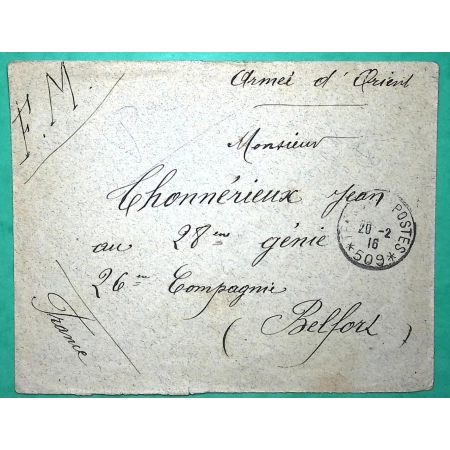 F. M.
Armée d'Orient
Monsieur
Thonnérieux Jean
au 28em génie
26em Compagnie
(Belfort)
France
POSTES
20-2
16
*509*